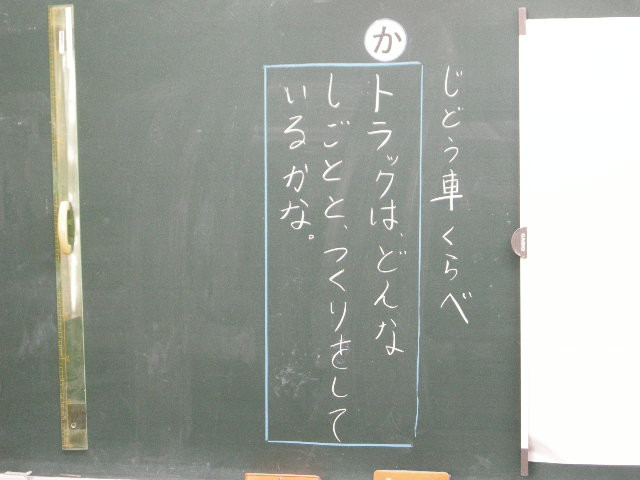 じどう車くらべ
か
トラックは、どんな
しごとと、つくりをして
いるかな。